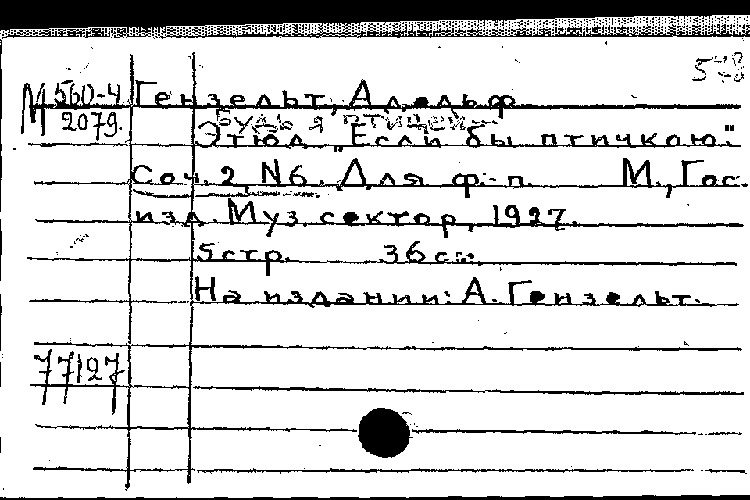 578
М 560-4 Гензельт, Адольф
2079. Будь я птицей...
Этюд „Если бы птичкою."
Соч. 2, N6. Для ф.-п. М., Гос.
изд. Муз. сектор, 1927.
5 стр. 36 см.
На издании: А. Гензельт.
77127